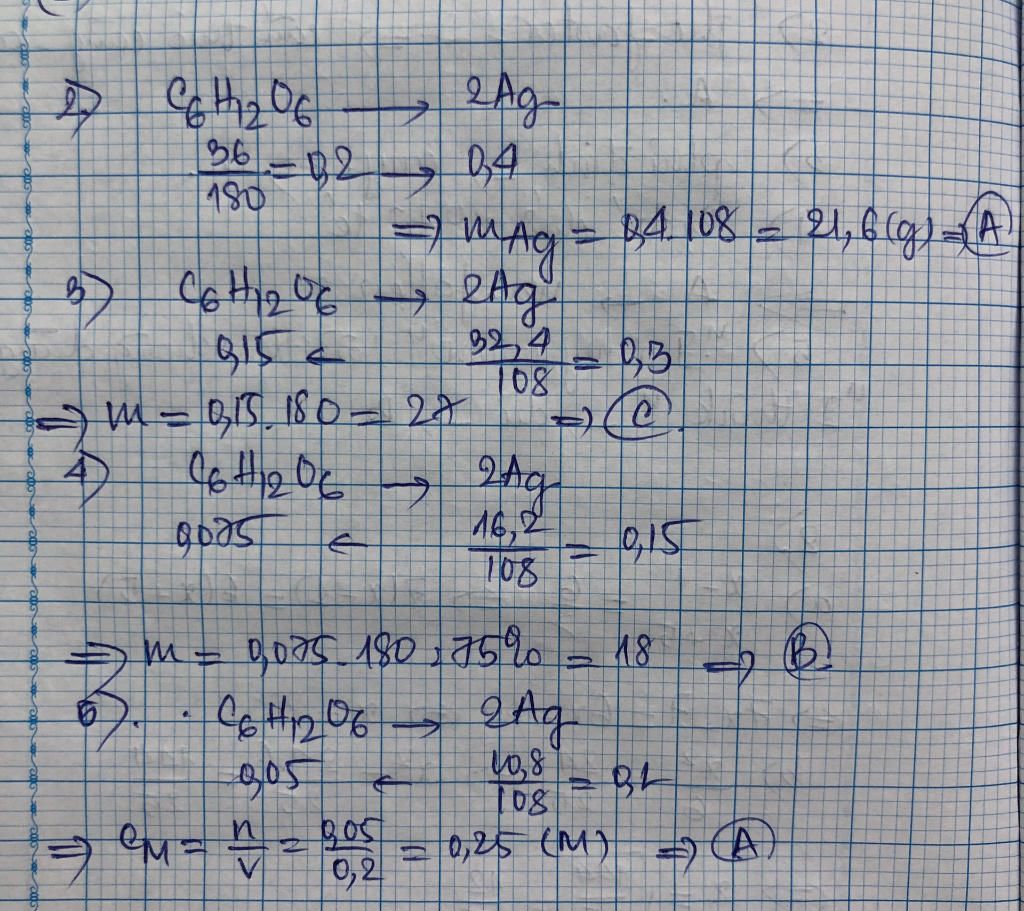 2) C₆H₁₂O₆ → 2Ag
36/180 = 0,2 → 0,4
⇒ mAg = 0,4.108 = 21,6(g) ⇒ A
3) C₆H₁₂O₆ → 2Ag
0,15 ← 32,4/108 = 0,3
⇒ m = 0,15.180 = 27 ⇒ C
4) C₆H₁₂O₆ → 2Ag
0,075 ← 16,2/108 = 0,15
⇒ m = 0,075.180:75% = 18 ⇒ B
5) C₆H₁₂O₆ → 2Ag
0,05 ← 10,8/108 = 0,1
⇒ CM = n/V = 0,05/0,2 = 0,25 (M) ⇒ A